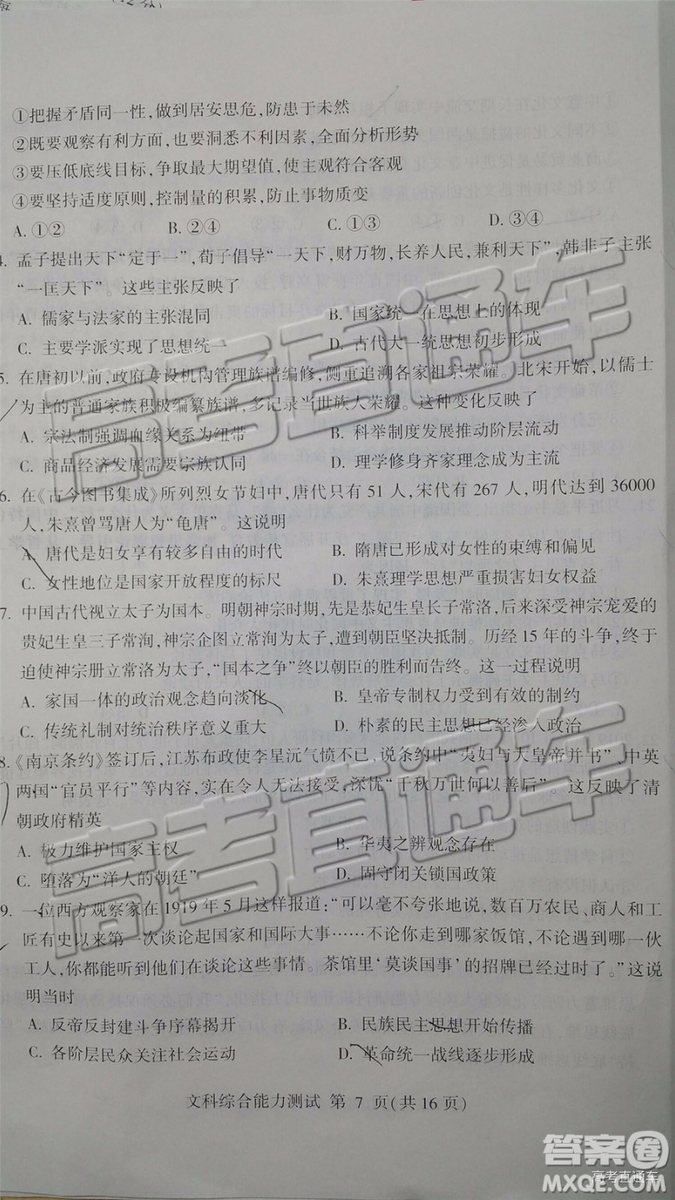 ①把握矛盾同一性,做到居安思危,防患于未然
②既要观察有利方面,也要洞悉不利因素,全面分析形势
③要压低底线目标,争取最大期望值,使主观符合客观
④要坚持适度原则,控制量的积累,防止事物质变
A. ①② B. ②④ C. ①③ D. ③④
4. 孟子提出天下“定于一”,荀子倡导“一天下,财万物,长养人民,兼利天下”,韩非子主张
“一匡天下”。这些主张反映了
A. 儒家与法家的主张混同 B. 国家统一在思想上的体现
C. 主要学派实现了思想统一 D. 古代大一统思想初步形成
5. 在唐初以前,政府专设机构管理族谱编修,侧重追溯各家祖宗荣耀。北宋开始,以儒士
为主的普通家族积极编纂族谱,多记录当世族人荣耀。这种变化反映了
A. 宗法制强调血缘关系为纽带 B. 科举制度发展推动阶层流动
C. 商品经济发展需要宗族认同 D. 理学修身齐家理念成为主流
6. 在《古今图书集成》所列烈女节妇中,唐代只有 51 人,宋代有 267 人,明代达到 36000
人,朱熹曾骂唐人为“龟唐”。这说明
A. 唐代是妇女享有较多自由的时代 B. 隋唐已形成对女性的束缚和偏见
C. 女性地位是国家开放程度的标尺 D. 朱熹理学思想严重损害妇女权益
7. 中国古代视立太子为国本。明朝神宗时期,先是恭妃生皇长子常洛,后来深受神宗宠爱的
贵妃生皇三子常洵,神宗企图立常洵为太子,遭到朝臣坚决抵制。历经 15 年的斗争,终于
迫使神宗册立常洛为太子,“国本之争”终以朝臣的胜利而告终。这一过程说明
A. 家国一体的政治观念趋向淡化 B. 皇帝专制权力受到有效的制约
C. 传统礼制对统治秩序意义重大 D. 朴素的民主思想已经渗入政治
8. 《南京条约》签订后,江苏布政使李星沅气愤不已,说条约中“夷妇与大皇帝并书”,中英
两国“官员平行”等内容,实在令人无法接受,深忧“千秋万世何以善后”。这反映了清
朝政府精英
A. 极力维护国家主权 B. 华夷之辨观念存在
C. 堕落为“洋人的朝廷” D. 固守闭关锁国政策
9. 一位西方观察家在 1919 年 5 月这样报道:“可以毫不夸张地说,数百万农民、商人和工
匠有史以来第一次谈论起国家和国际大事……不论你走到哪家饭馆,不论你遇到哪一伙
工人,你都能听到他们在谈论这些事情。茶馆里‘莫谈国事’的招牌已经过时了。”这说
明当时
A. 反帝反封建斗争序幕揭开 B. 民族民主思想开始传播
C. 各阶层民众关注社会运动 D. 革命统一战线逐步形成
文科综合能力测试 第 7 页(共16页)
高考直通车
高考直通车
答案卷
高考直通车